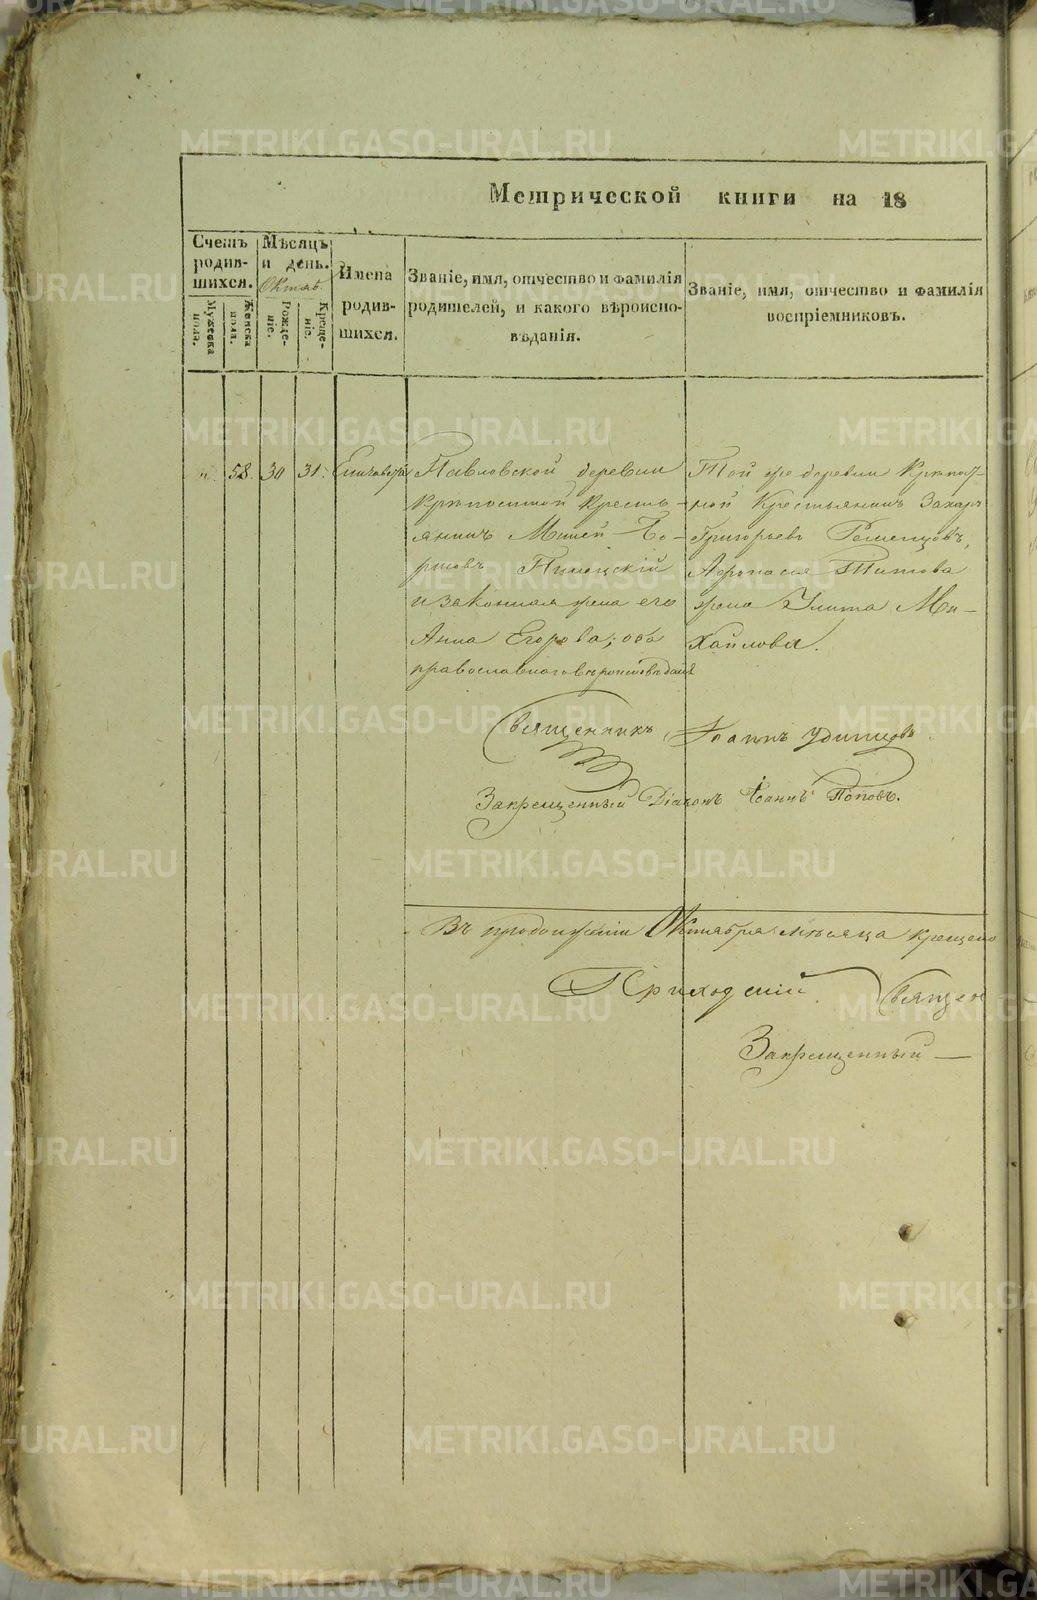 Метрической книги на 18
Счетъ родившихся.
Мѣсяцъ и день.
Октяб.
Мужеска пола.
Женска пола.
Рожденіе.
Крещеніе.
Имена родившихся.
Званіе, имя, отчество и фамилія родителей, и какого вѣроисповѣданія.
Званіе, имя, отчество и фамилія воспріемниковъ.
" 58. 30 31. Елисавета
Павловской деревни
крѣпостной кресть-
янинъ Моисей
и законная жена его
Анна Егорова; оба
православнаго вѣроисповѣданія
Той же деревни Крѣпост-
ной Крестьянинъ Захаръ
Григорьевъ Ременцовъ,
Афонасья Титова
жена Улита Ми-
хайлова.
Священникъ Іоаннъ Удинцовъ.
Запрещенный Діаконъ Іоаннъ Поповъ.
Въ продолженіи Октября мѣсяца крещено
Приходскій Священ
Запрещенный —
METRIKI.GASO-URAL.RU